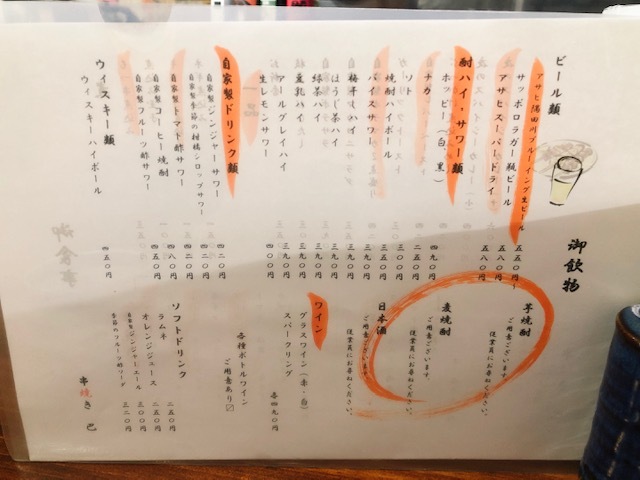 御飲物
ビール類
アサヒ隅田川ブルーイング生ビール 五五〇円〜
サッポロラガー瓶ビール 五八〇円
アサヒスーパードライ 五八〇円
酎ハイ・サワー類
ホッピー(白、黒) 四九〇円
ナカ
ソト 三〇〇円
焼酎ハイボール
バイスサワー 三九〇円
ほうじ茶ハイ 三九〇円
緑茶ハイ 三九〇円
豆乳ハイ 三九〇円
アールグレイハイ 三九〇円
生レモンサワー 四〇〇円
自家製ドリンク類
自家製ジンジャーサワー 四二〇円
自家製季節の柑橘シロップサワー 四二〇円
自家製トマト酢サワー 四八〇円
自家製コーヒー焼酎 四二〇円
自家製フルーツ酢サワー 四五〇円
ウィスキー類
ウィスキーハイボール 四五〇円
芋焼酎
ご用意ございます。
従業員にお尋ねください。
麦焼酎
ご用意ございます。
従業員にお尋ねください。
日本酒
ご用意ございます。
従業員にお尋ねください。
ワイン
グラスワイン(赤・白)
スパークリング
各四九〇円
各種ボトルワイン
ご用意あり〼
ソフトドリンク
ラムネ 二五〇円
オレンジジュース 二五〇円
自家製ジンジャーエール 三〇〇円
季節のフルーツ酢ソーダ 三二〇円
串焼き 巴